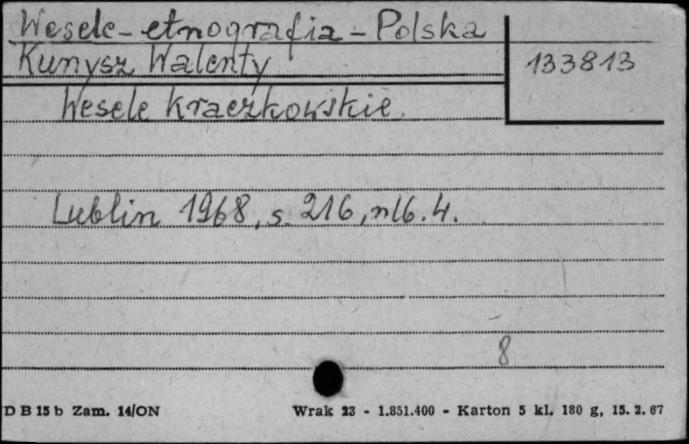 Wesele - etnografia - Polska
Kunysz Walenty
133813
Wesele kraczkowskie.
Lublin 1968, s. 216, nlb. 4.
8
D B 15 b Zam. 14/ON
Wrak 23 - 1.851.400 - Karton 5 kl. 180 g, 15. 2. 67